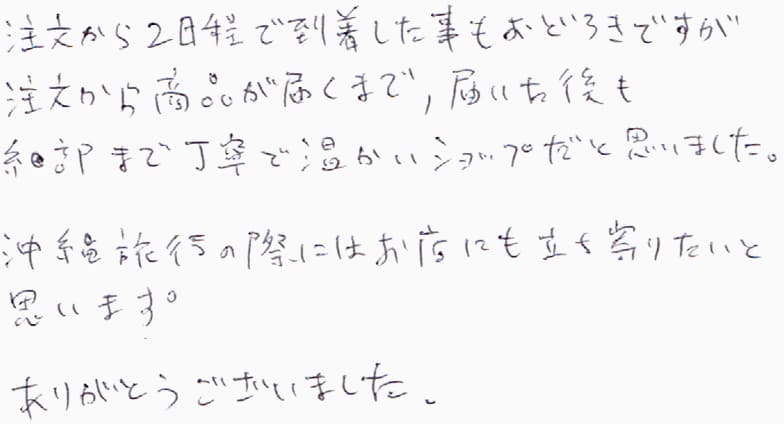 注文から2日程で到着した事もおどろきですが
注文から商品が届くまで,届いた後も
細部まで丁寧で温かいショップだと思いました。
沖縄旅行の際にはお店にも立ち寄りたいと
思います。
ありがとうございました。